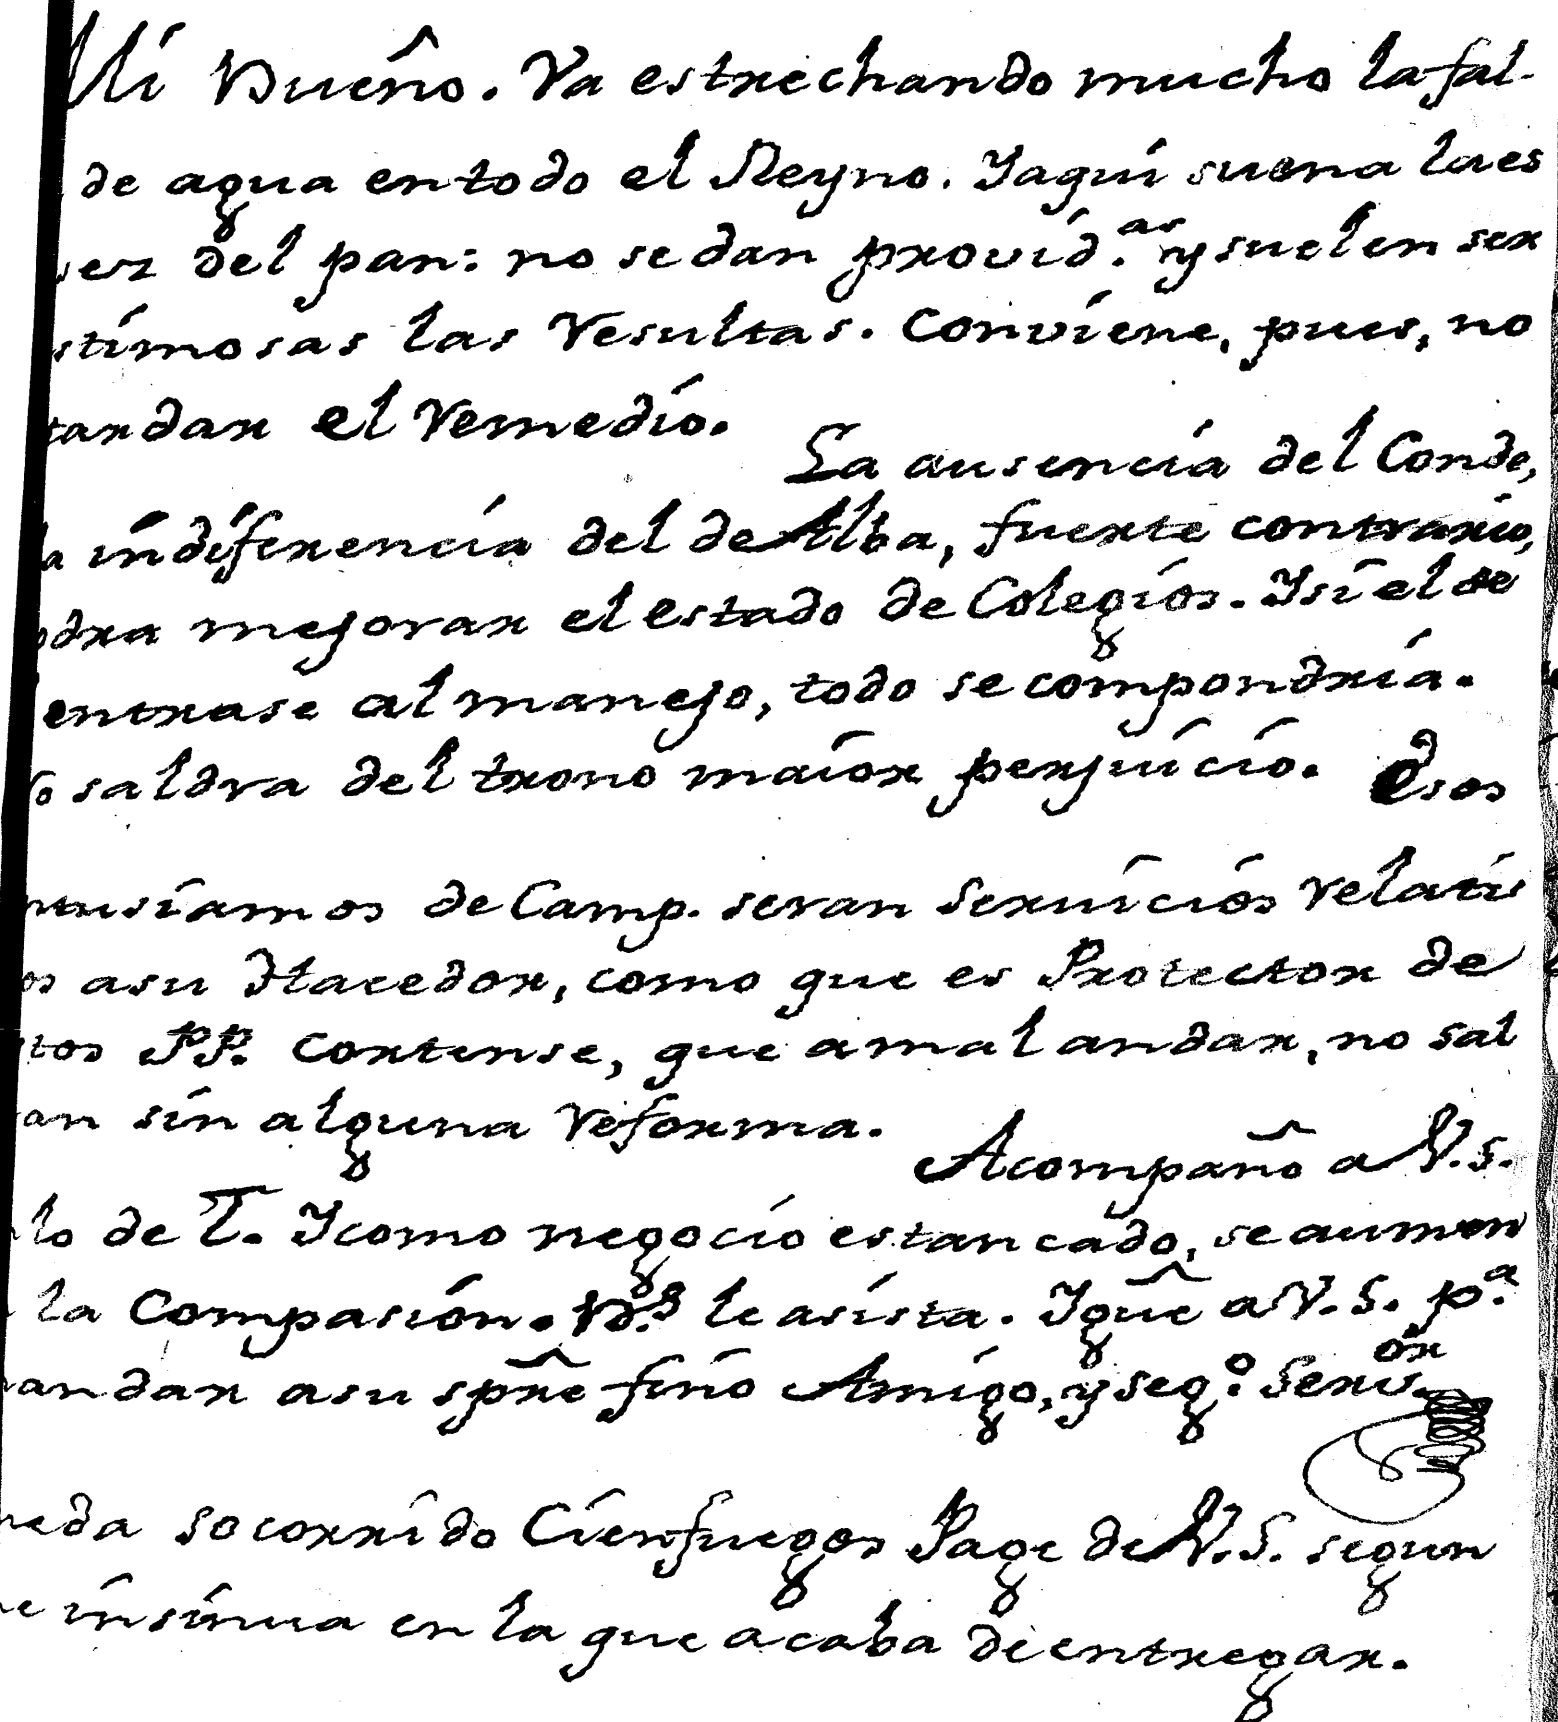 Mi Dueño. Va estrechando mucho la fal-
de agua en todo el Reyno. Yaqui suena la es
sez del pan: no se dan provid.as y suelen ser
stimosas las resultas. Conviene, pues, no
tardar el remedio.
La ausencia del Conde,
la indiferencia del de Alba, fuerte contrario,
odra mejorar el estado de Colegios. Y si el de
entrase al manejo, todo se compondria.
No saldra del trono maior perjuicio. Esos
ntusiamos de Camp. seran servicios relati
os a su Hacedor, como que es Protector de
stos PP. Cortense, que a mal andar, no sal
ran sin alguna reforma.
Acompaño a V.S.
lo de T. Y como negocio estancado, se aumen
la Compasión. D.s le asista. Y gue a V.S. p.a
andar a su spre fino Amigo, y seg.o Serv.or
neda socorrido Cienfuegos Page de V.S. segun
e insinua en la que acaba de entregar.